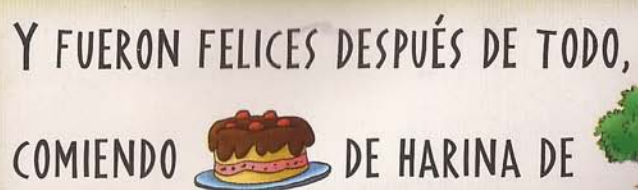 Y FUERON FELICES DESPUÉS DE TODO,
COMIENDO DE HARINA DE